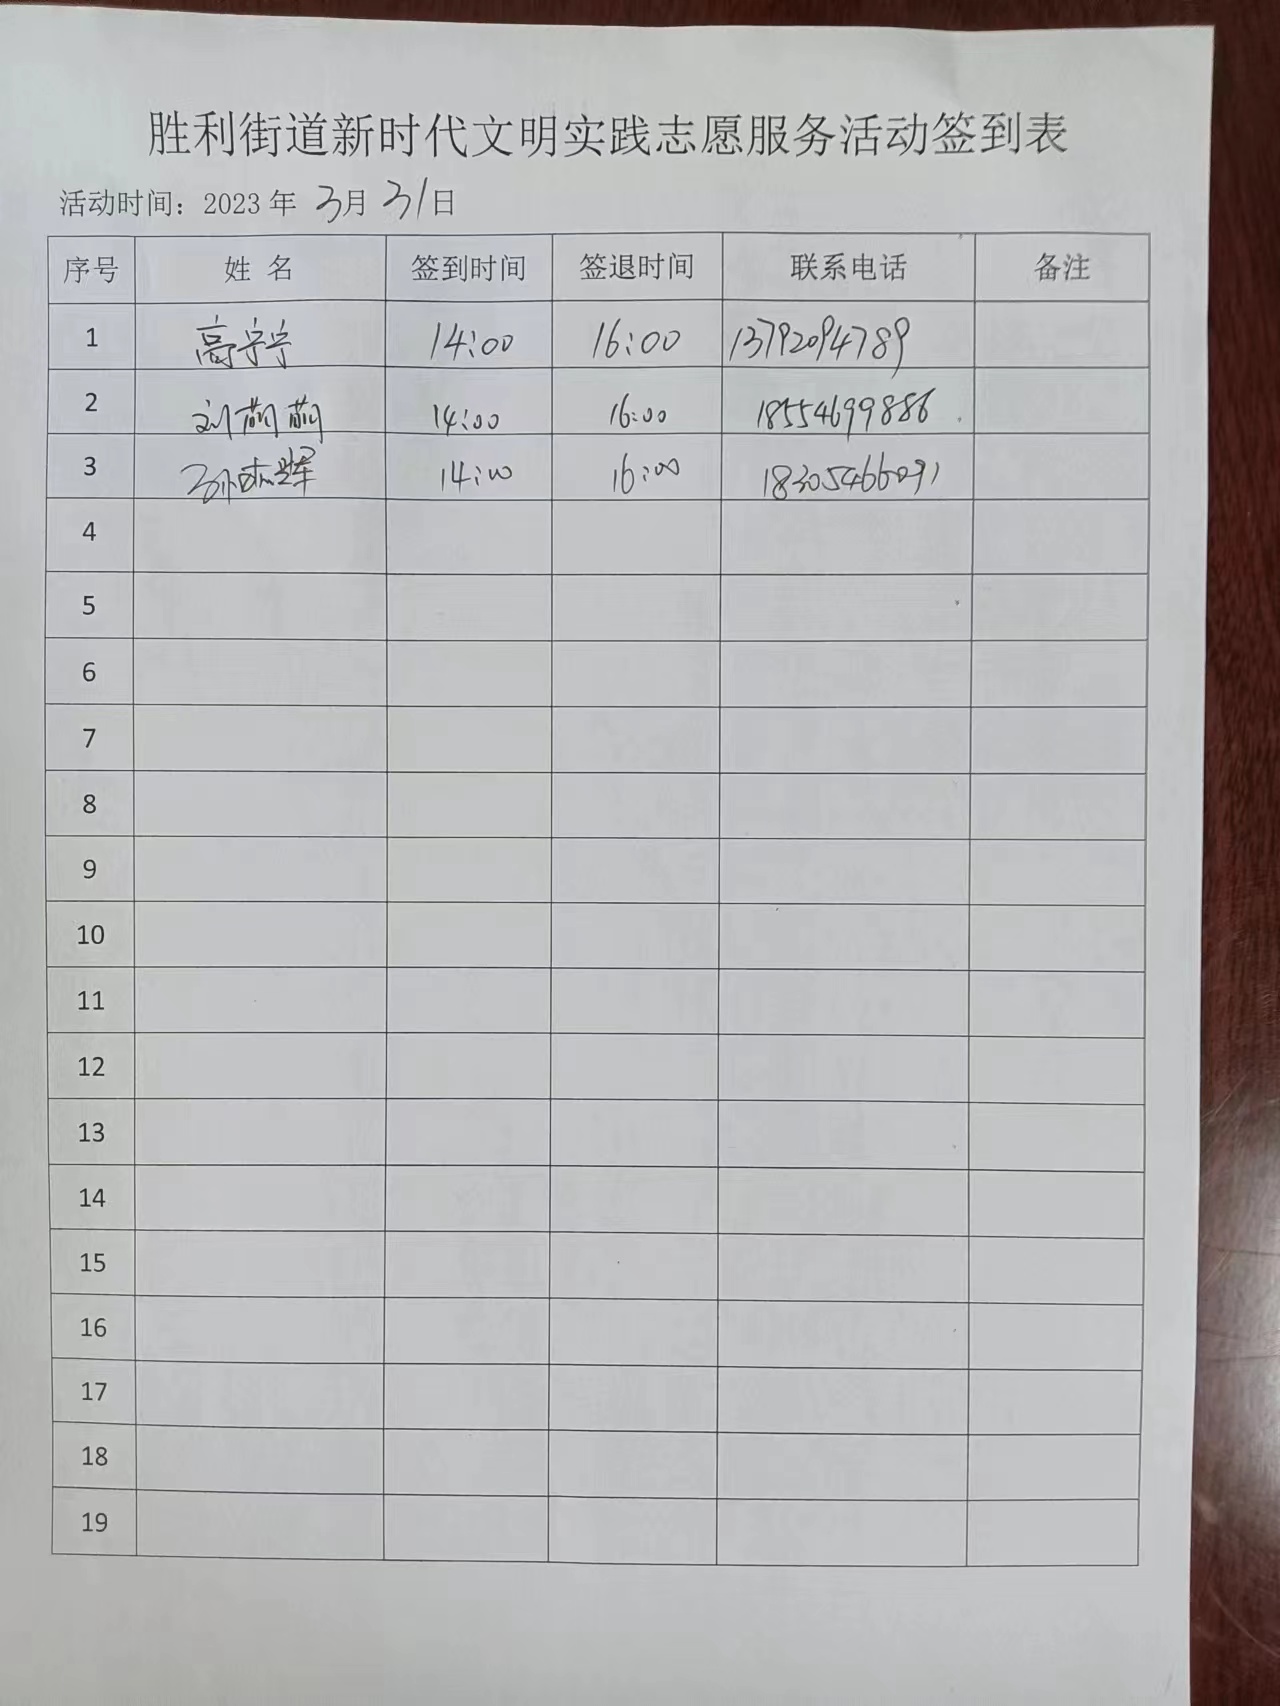 胜利街道新时代文明实践志愿服务活动签到表
活动时间：2023 年 3月 31日
序号 姓 名 签到时间 签退时间 联系电话 备注
1 高宁宁 14:00 16:00 13792094789
2 刘萌萌 14:00 16:00 18554699886
3 孙 14:00 16:00 18305466091
4
5
6
7
8
9
10
11
12
13
14
15
16
17
18
19